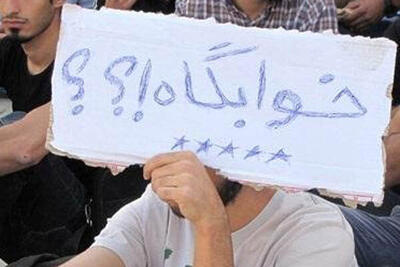 خوابگاه!؟؟؟
*****